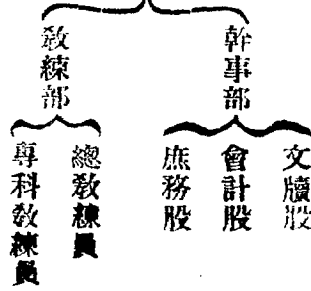 幹事部
文牘股
會計股
庶務股
教練部
總教練員
專科教練員